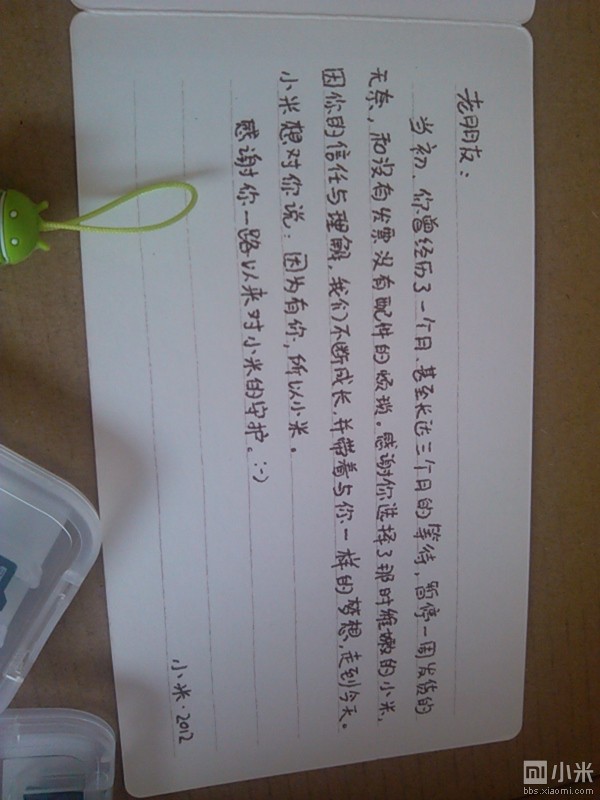 老朋友：
当初，你曾经历了一个月、甚至长达三个月的等待，暂停一周发货的
无奈，和没有发票没有配件的烦琐。感谢你选择了那时稚嫩的小米，
因你的信任与理解，我们不断成长，并带着与你一样的梦想，走到今天。
小米想对你说：因为有你，所以小米。
感谢你一路以来对小米的守护。:-)
小米·2012
小米
bbs.xiaomi.com